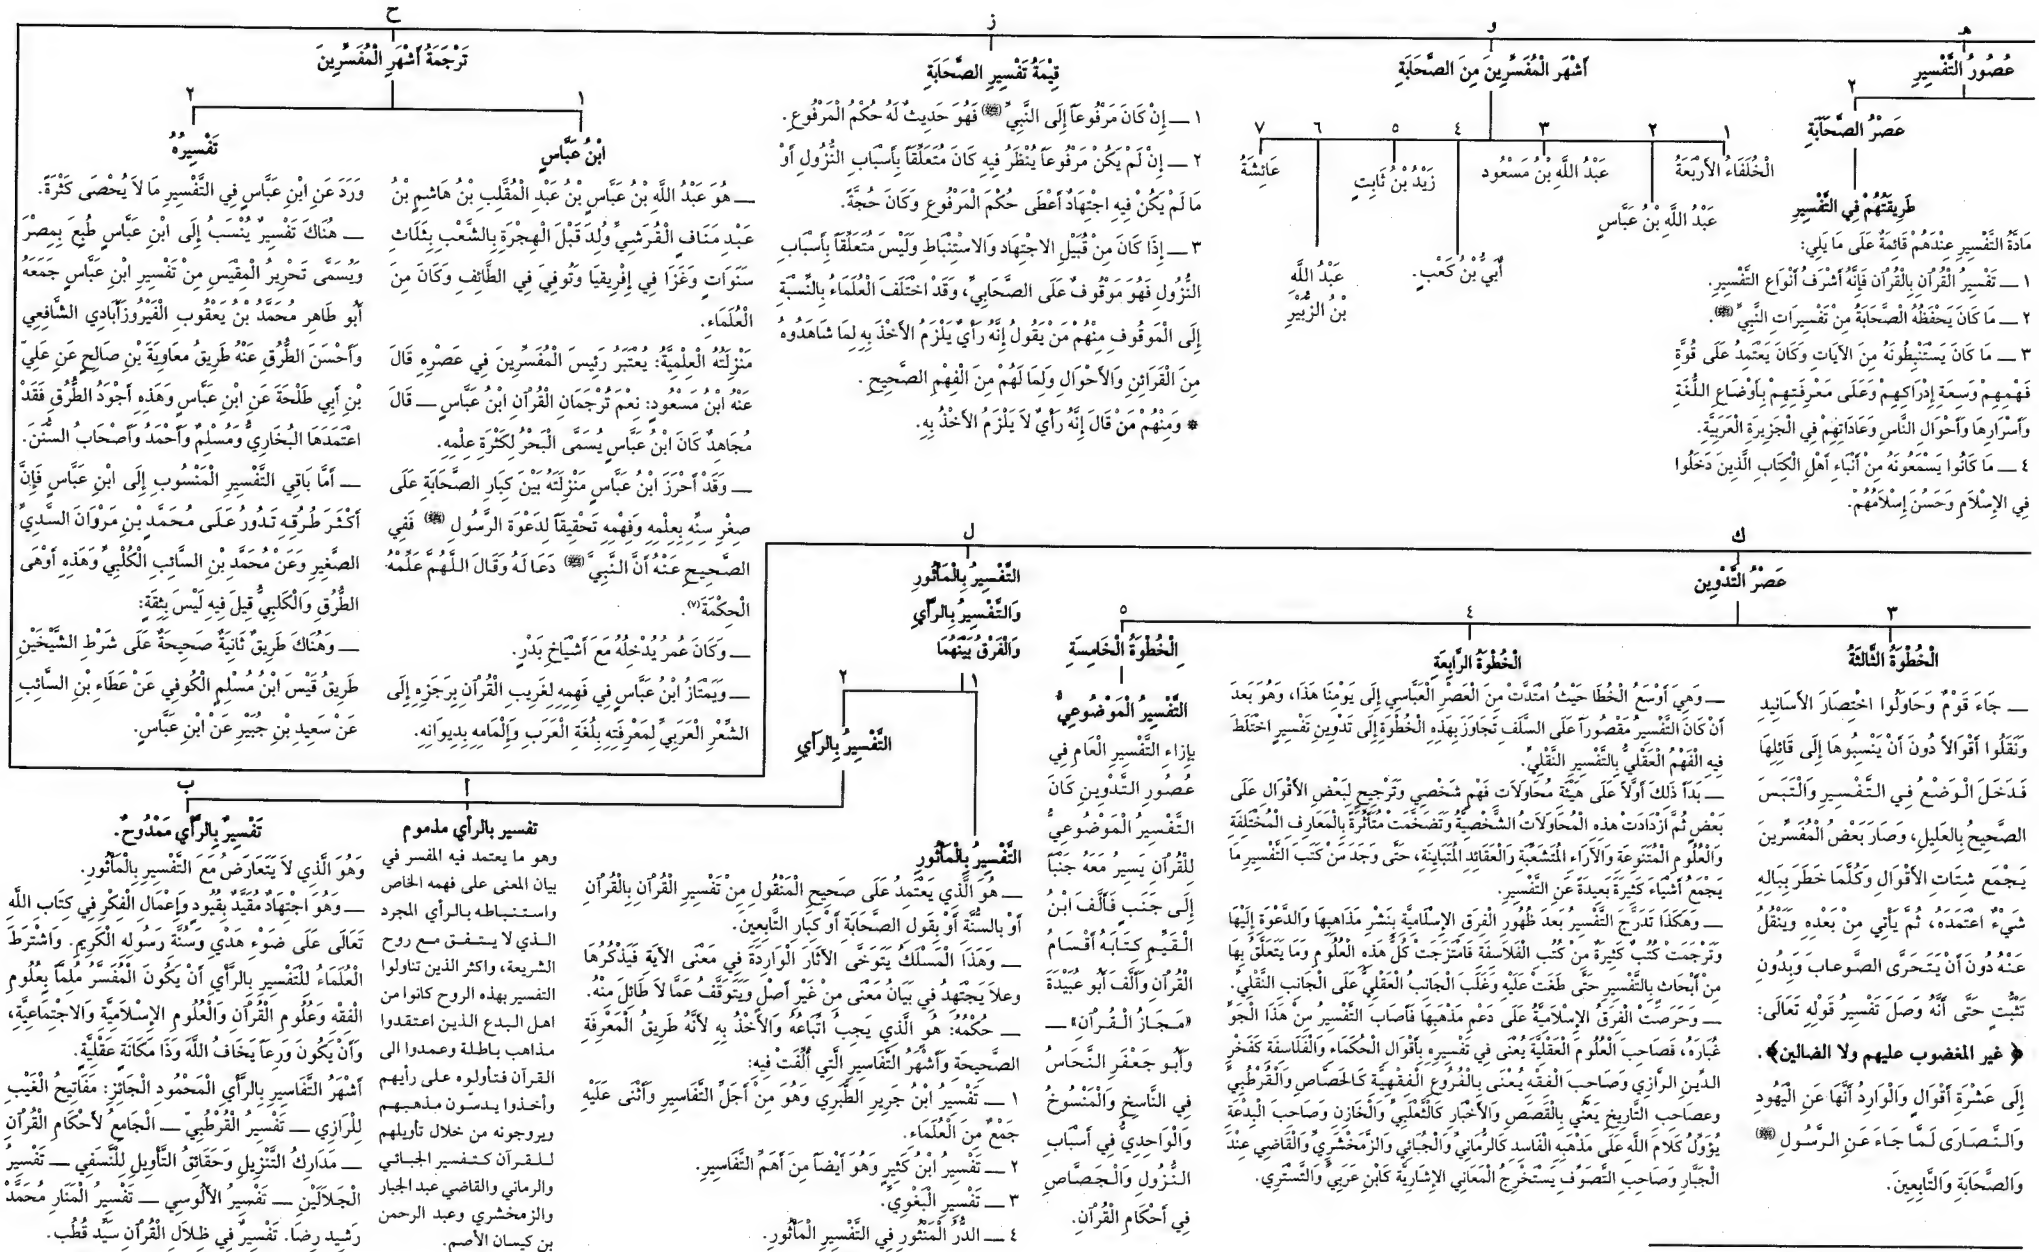 هـ
عُصُورُ التَّفْسِيرِ
٢
عَصْرُ الصَّحَابَةِ
طَرِيقَتُهُمْ فِي التَّفْسِيرِ
مَادَّةُ التَّفْسِيرِ عِنْدَهُمْ قَائِمَةٌ عَلَى مَا يَلِي:
١ ــ تَفْسِيرُ الْقُرْآنِ بِالْقُرْآنِ فَإِنَّهُ أَشْرَفُ أَنْوَاعِ التَّفْسِيرِ.
٢ ــ مَا كَانَ يَحْفَظُهُ الصَّحَابَةُ مِنْ تَفْسِيرَاتِ النَّبِيِّ ﷺ.
٣ ــ مَا كَانَ يَسْتَنْبِطُونَهُ مِنَ الآيَاتِ وَكَانَ يَعْتَمِدُ عَلَى قُوَّةِ
فَهْمِهِمْ وَسِعَةِ إِدْرَاكِهِمْ وَعَلَى مَعْرِفَتِهِمْ بِأَوْضَاعِ اللُّغَةِ
وَأَسْرَارِهَا وَأَحْوَالِ النَّاسِ وَعَادَاتِهِمْ فِي الْجَزِيرَةِ الْعَرَبِيَّةِ.
٤ ــ مَا كَانُوا يَسْمَعُونَهُ مِنْ أَنْبَاءِ أَهْلِ الْكِتَابِ الَّذِينَ دَخَلُوا
فِي الإِسْلَامِ وَحَسُنَ إِسْلَامُهُمْ.
و
أَشْهَرُ الْمُفَسِّرِينَ مِنَ الصَّحَابَةِ
١
الْخُلَفَاءُ الأَرْبَعَةُ
٢
عَبْدُ اللَّهِ بْنُ عَبَّاسٍ
٣
عَبْدُ اللَّهِ بْنُ مَسْعُود
٤
أُبَيُّ بْنُ كَعْبٍ.
٥
زَيْدُ بْنُ ثَابِتٍ
٦
عَبْدُ اللَّه
بْنُ الزُّبَيْرِ
٧
عَائِشَةُ
ز
قِيْمَةُ تَفْسِيرِ الصَّحَابَةِ
١ ــ إِنْ كَانَ مَرْفُوعاً إِلَى النَّبِيِّ ﷺ فَهُوَ حَدِيثٌ لَهُ حُكْمُ الْمَرْفُوعِ.
٢ ــ إِنْ لَمْ يَكُنْ مَرْفُوعاً يُنْظَرُ فِيهِ كَانَ مُتَعَلِّقاً بِأَسْبَابِ النُّزُولِ أَوْ
مَا لَمْ يَكُنْ فِيهِ اجْتِهَادٌ أَعْطَى حُكْمَ الْمَرْفُوعِ وَكَانَ حُجَّةً.
٣ ــ إِذَا كَانَ مِنْ قُبَيْلِ الاجْتِهَادِ وَالاسْتِنْبَاطِ وَلَيْسَ مُتَعَلِّقاً بِأَسْبَابِ
النُّزُولِ فَهُوَ مَوْقُوفٌ عَلَى الصَّحَابِيِّ، وَقَدْ اخْتَلَفَ الْعُلَمَاءُ بِالنِّسْبَةِ
إِلَى الْمَوقُوفِ مِنْهُمْ مَنْ يَقُولُ إِنَّهُ رَأْيٌ يَلْزَمُ الأَخْذَ بِهِ لِمَا شَاهَدُوهُ
مِنَ الْقَرَائِنِ وَالأَحْوَالِ وَلِمَا لَهُمْ مِنَ الْفَهْمِ الصَّحِيحِ.
* وَمِنْهُمْ مَنْ قَالَ إِنَّهُ رَأْيٌ لاَ يَلْزَمُ الأَخْذُ بِهِ.
ح
تَرْجَمَةُ أَشْهَرِ الْمُفَسِّرِينَ
١
ابْنُ عَبَّاسٍ
ــ هُوَ عَبْدُ اللَّهِ بْنُ عَبَّاسٍ بْنُ عَبْدِ الْمُطَّلِبِ بْنُ هَاشِمٍ بْنُ
عَبْدِ مَنَافِ الْقُرَشِيِّ وُلِدَ قَبْلَ الْهِجْرَةِ بِالشَّعْبِ بِثَلَاثِ
سَنَوَاتٍ وَغَزَا فِي إِفْرِيقيَا وَتُوفِيَ فِي الطَّائِفِ وَكَانَ مِنَ
الْعُلَمَاءِ.
مَنْزِلَتُهُ الْعِلْمِيَّةُ: يُعْتَبَرُ رَئِيسَ الْمُفَسِّرِينَ فِي عَصْرِهِ قَالَ
عَنْهُ ابْنُ مَسْعُودٍ: نِعْمَ تُرْجَمَانِ الْقُرْآنِ ابْنُ عَبَّاسٍ ــ قَالَ
مُجَاهِدٌ كَانَ ابْنُ عَبَّاسٍ يُسَمَّى الْبَحْرُ لِكَثْرَةِ عِلْمِهِ.
ــ وَقَدْ أَحْرَزَ ابْنُ عَبَّاسٍ مَنْزِلَتَهُ بَيْنَ كِبَارِ الصَّحَابَةِ عَلَى
صِغْرِ سِنِّهِ بِعِلْمِهِ وَفَهْمِهِ تَحْقِيقاً لِدَعْوَةِ الرَّسُولِ ﷺ فَفِي
الصَّحِيحِ عَنْهُ أَنَّ النَّبِيَّ ﷺ دَعَا لَهُ وَقَالَ اللَّهُمَّ عَلِّمْهُ
الْحِكْمَةَ(٧).
ــ وَكَانَ عُمَرُ يُدْخِلُهُ مَعَ أَشْيَاخِ بَدْرٍ.
ــ وَيَمْتَازُ ابْنُ عَبَّاسٍ فِي فَهْمِهِ لِغَرِيبِ الْقُرْآنِ بِرَجَزِهِ إِلَى
الشِّعْرِ الْعَرَبِيِّ لِمَعْرِفَتِهِ بِلُغَةِ الْعَرَبِ وَإِلْمَامِهِ بِدِيوَانِهِ.
٢
تَفْسِيرُهُ
وَرَدَ عَنِ ابْنِ عَبَّاسٍ فِي التَّفْسِيرِ مَا لاَ يُحْصَى كَثْرَةً.
ــ هُنَاكَ تَفْسِيرٌ يُنْسَبُ إِلَى ابْنِ عَبَّاسٍ طُبِعَ بِمِصْرَ
وَيُسَمَّى تَحْرِيرُ الْمِقْيَسِ مِنْ تَفْسِيرِ ابْنِ عَبَّاسٍ جَمَعَهُ
أَبُو طَاهِرِ مُحَمَّدُ بْنُ يَعْقُوبِ الْفَيْرُوزأَبَادِي الشَّافِعِي
وَأَحْسَنَ الطُّرُقِ عَنْهُ طَرِيقُ مُعَاوِيَةَ بْنِ صَالِحٍ عَنِ عَلِيِّ
بْنِ أَبِي طَلْحَةَ عَنِ ابْنِ عَبَّاسٍ وَهَذِهِ أَجْوَدُ الطُّرُقِ فَقَدْ
اعْتَمَدَهَا الْبُخَارِيُّ وَمُسْلِمٌ وَأَحْمَدُ وَأَصْحَابُ السُّنَنِ.
ــ أَمَّا بَاقِي التَّفْسِيرِ الْمَنْسُوبِ إِلَى ابْنِ عَبَّاسٍ فَإِنَّ
أَكْثَرَ طُرُقِهِ تَدُورُ عَلَى مُحَمَّدِ بْنِ مَرْوَانَ السُّدِيِّ
الصَّغِيرِ وَعَنْ مُحَمَّدِ بْنِ السَّائِبِ الْكَلْبِيِّ وَهَذِهِ أَوْهَى
الطُّرُقِ وَالْكَلْبِيُّ قِيلَ فِيهِ لَيْسَ بِثِقَةٍ:
ــ وَهُنَاكَ طَرِيقٌ ثَانِيَةٌ صَحِيحَةٌ عَلَى شَرْطِ الشَّيْخَيْنِ
طَرِيقُ قَيْسَ ابْنُ مُسْلِمِ الْكُوفِي عَنْ عَطَاءِ بْنِ السَّائِبِ
عَنْ سَعِيدِ بْنِ جُبَيْرٍ عَنْ ابْنِ عَبَّاسٍ.
ك
عَصْرُ التَّدْوِينِ
٣
الْخُطْوَةُ الثَّالِثَةُ
ــ جَاءَ قَوْمٌ وَحَاوَلُوا اخْتِصَارَ الأَسَانِيدِ
وَنَقَلُوا أَقْوَالاً دُونَ أَنْ يَنْسِبُوهَا إِلَى قَائِلِهَا
فَدَخَلَ الْوَضْعُ فِي التَّفْسِيرِ وَالْتَبَسَ
الصَّحِيحُ بِالعَلِيلِ، وَصَارَ بَعْضُ الْمُفَسِّرِينَ
يَجْمَعِ شَتَاتَ الأَقْوَالِ وَكُلَّمَا خَطَرَ بِبَالِهِ
شَيْءٌ اعْتَمَدَهُ، ثُمَّ يَأْتِي مِنْ بَعْدِهِ وَيَنْقُلُ
عَنْهُ دُونَ أَنْ يَتَحَرَّى الصَّوعابَ وَبِدُونِ
تَثَبُّتٍ حَتَّى أَنَّهُ وَصَلَ تَفْسِيرُ قَوْلِهِ تَعَالَى:
﴿ غير المغضوب عليهم ولا الضالين ﴾.
إِلَى عَشْرَةِ أَقْوَالٍ وَالْوَارِدُ أَنَّهَا عَنِ الْيَهُودِ
وَالنَّصَارَى لَمَّا جَاءَ عَنِ الرَّسُولِ ﷺ
وَالصَّحَابَةِ وَالتَّابِعِينَ.
٤
الْخُطْوَةُ الرَّابِعَةِ
ــ وَهِيَ أَوْسَعُ الْخُطَا حَيْثُ امْتَدَّتْ مِنَ الْعَصْرِ الْعَبَّاسِي إِلَى يَوْمِنَا هَذَا، وَهُوَ بَعْدَ
أَنْ كَانَ التَّفْسِيرُ مَقْصُوراً عَلَى السَّلَفِ تَجَاوَزَ بِهَذِهِ الْخُطْوَةِ إِلَى تَدْوِينِ تَفْسِيرٍ اخْتَلَطَ
فِيهِ الْفَهْمُ الْعَقْلِيُّ بِالتَّفْسِيرِ النَّقْلِيِّ.
ــ بَدَأَ ذَلِكَ أَوَّلاً عَلَى هَيْئَةِ مُحَاوَلَاتِ فَهْمٍ شَخْصِي وَتَرْجِيحٍ لِبَعْضِ الأَقْوَالِ عَلَى
بَعْضٍ ثُمَّ ازْدَادَتْ هَذِهِ الْمُحَاوَلاَتُ الشَّخْصِيَّةُ وَتَضَخَّمَتْ مُتَأَثِّرَةً بِالْمَعَارِفِ الْمُخْتَلِفَةِ
وَالْعُلُومِ الْمُتَنَوِّعَةِ وَالآرَاءِ الْمُتَشَعِّبَةِ وَالْعَقَائِدِ الْمُتَبَايِنَةِ، حَتَّى وَجَدَ مِنْ كُتُبَ التَّفْسِيرِ مَا
يَجْمَعُ أَشْيَاءَ كَثِيرَةً بَعِيدَةً عَنِ التَّفْسِيرِ.
ــ وَهَكَذَا تَدَرَّجَ التَّفْسِيرُ بَعْدَ ظُهُورِ الْفِرَقِ الإِسْلَامِيَّةِ بِنَشْرِ مَذَاهِبِهَا وَالدَّعْوَةِ إِلَيْهَا
وَتُرْجَمَتْ كُتُبٌ كَثِيرَةٌ مِنْ كُتُبِ الْفَلاَسِفَةِ فَامْتَزَجَتْ كُلُّ هَذِهِ الْعُلُومِ وَمَا يَتَعَلَّقُ بِهَا
مِنْ أَبْحَاثٍ بِالتَّفْسِيرِ حَتَّى طَغَتْ عَلَيْهِ وَغَلَّبَ الْجَانِبُ الْعَقْلِيُّ عَلَى الْجَانِبِ النَّقْلِيِّ.
ــ وَحَرَصَتْ الْفِرَقُ الإِسْلَامِيَّةُ عَلَى دَعْمِ مَذْهَبِهَا فَأَصَابَ التَّفْسِيرُ مِنْ هَذَا الْجَوِّ
غُبَارَهُ، فَصَاحِبُ الْعُلُومِ الْعَقْلِيَّةِ يُعْنَى فِي تَفْسِيرِهِ بِأَقْوَالِ الْحُكَمَاءِ وَالْفَلَاسِفَةِ كَفَخْرِ
الدِّينِ الرَّازِي وَصَاحِبَ الْفِقْهِ يُعْنَى بِالْفُرُوعِ الْفِقْهِيَّةِ كَالْحَصَّاصِ وَالْقُرْطُبِيِّ
وعصاحب التَّارِيخِ يَعْنَي بِالْقَصَصِ وَالأَخْبَارِ كَالثَّعْلَبِيِّ وَالْخَازِنِ وَصَاحِبَ الْبِدْعَةِ
يُؤَوِّلُ كَلَامَ اللَّهِ عَلَى مَذْهَبِهِ الْفَاسِدِ كَالرُّمَانِيِّ وَالْجُبَائِي وَالزَّمَخْشَرِيِّ وَالْقَاضِي عِنْدَ
الْجَبَّارِ وَصَاحِبَ التَّصَوُّفِ يَسْتَخْرِجُ الْمَعَانِي الإِشَارِيَّةَ كَابْنِ عَرَبِيِّ وَالتُّسْتَرِي.
٥
الْخُطْوَةُ الْخَامِسَةِ
التَّفْسِيرُ الْمَوْضُوعِيُّ
بِإِزَاءِ التَّفْسِيرِ الْعَامِ فِي
عُصُورِ التَّدْوِينِ كَانَ
التَّفْسِيرُ الْمَوْضُوعِيُّ
لِلْقُرْآنِ يَسِيرُ مَعَهُ جَنْباً
إِلَى جَنْبٍ فَأَلَّفَ ابْنُ
الْقَيِّمِ كِتَابَهُ أَقْسَامُ
الْقُرْآنِ وَأَلَّفَ أَبُو عُبَيْدَةَ
«مَجَازُ الْقُرْآنِ» ــ
وَأَبُو جَعْفَرِ النَّحَاسُ
فِي النَّاسِخِ وَالْمَنْسُوخُ
وَالْوَاحِدِيُّ فِي أَسْبَابِ
النُّزُولِ وَالْجَصَّاصِ
فِي أَحْكَامِ الْقُرْآنِ.
ل
التَّفْسِيرُ بِالْمَأْثُورِ
وَالتَّفْسِيرُ بِالرَّأْيِ
وَالْفَرْقُ بَيْنَهُمَا
١
التَّفْسِيرُ بِالْمَأْثُورِ
ــ هُوَ الَّذِي يَعْتَمِدُ عَلَى صَحِيحِ الْمَنْقُولِ مِنْ تَفْسِيرِ الْقُرْآنِ بِالْقُرْآنِ
أَوْ بِالسُّنَّةِ أَوْ بِقَولِ الصَّحَابَةِ أَوْ كِبَارِ التَّابِعِينَ.
ــ وَهَذَا الْمَسْلَكُ يَتَوَخَّى الآثَارَ الْوَارِدَةَ فِي مَعْنَى الآيَةِ فَيَذْكُرُهَا
وعلاَ يَجْتَهِدُ فِي بَيَانِ مَعْنًى مِنْ غَيْرِ أَصْلٍ وَيَتَوَقَّفُ عَمَّا لاَ طَائِلَ مِنْهُ.
ــ حُكْمُهُ: هُوَ الَّذِي يَجِبُ اتِّبَاعُهُ وَالأَخْذُ بِهِ لأَنَّهُ طَرِيقُ الْمَعْرِفَةِ
الصَّحِيحَةِ وَأَشْهَرُ التَّفَاسِيرِ الَّتِي أُلِّفَتْ فِيهِ:
١ ــ تَفْسِيرُ ابْنُ جَرِيرِ الطَّبَرِي وَهُوَ مِنْ أَجَلِّ التَّفَاسِيرِ وَأَثْنَى عَلَيْهِ
جَمْعٌ مِنَ الْعُلَمَاءِ.
٢ ــ تَفْسِيرُ ابْنُ كَثِيرٍ وَهُوَ أَيْضاً مِنَ أَهَمِّ التَّفَاسِيرِ.
٣ ــ تَفْسِيرِ الْبَغَوِيِّ.
٤ ــ الدُّرُّ الْمَنْثُورِ فِي التَّفْسِيرِ الْمَأْثُورِ.
٢
التَّفْسِيرُ بِالرَّأْيِ
ا
تفسير بالرأي مذموم
وهو ما يعتمد فيه المفسر في
بيان المعنى على فهمه الخاص
واستنباطه بالرأي المجرد
الذي لا يتفق مع روح
الشريعة، واكثر الذين تناولوا
التفسير بهذه الروح كانوا من
اهل البدع الذين اعتقدوا
مذاهب باطلة وعمدوا الى
القرآن فتأولوه على رأيهم
وأخذوا يدسّون مذهبهم
ويروجونه من خلال تأويلهم
للقرآن كتفسير الجبائي
والرماني والقاضي عبد الجبار
والزمخشري وعبد الرحمن
بن كيسان الأصم.
ب
تَفْسِيرٌ بِالرَّأْي مَمْدُوحٌ.
وَهُوَ الَّذِي لاَ يَتَعَارَضُ مَعَ التَّفْسِيرِ بِالْمَأْثُورِ.
ــ وَهُوَ اجْتِهَادٌ مُقَيَّدٌ بِقُيُودٍ وَإِعْمَالِ الْفِكْرِ فِي كِتَابِ اللَّهِ
تَعَالَى عَلَى ضَوْءِ هَدْيِ وَسُنَّةِ رَسُولِهِ الْكَرِيمِ. وَاشْتَرَطَ
الْعُلَمَاءُ لِلتَّفْسِيرِ بِالرَّأْيِ أَنْ يَكُونَ الْمُفَسِّرُ مُلِمّاً بِعُلُومِ
الْفِقْهِ وَعُلُومِ الْقُرْآنِ وَالْعُلُومِ الإِسْلَامِيَّةِ وَالاجْتِمَاعِيَّةِ،
وَأَنْ يَكُونَ وَرِعاً يَخَافُ اللَّهَ وَذَا مَكَانَةٍ عَقْلِيَّةٍ.
أَشْهَرُ التَّفَاسِيرِ بِالرَّأْيِ الْمَحْمُودِ الْجَائِزِ: مَفَاتِيحُ الْغَيْبِ
لِلْرَازِي ــ تَفْسِيرُ الْقُرْطُبِيِّ ــ الْجَامِعُ لأَحْكَامِ الْقُرْآنِ
ــ مَدَارِكُ التَّنْزِيلِ وَحَقَائِقُ التَّأْوِيلِ لِلْنَّسَفِي ــ تَفْسِيرُ
الْجَلاَلَيْنِ ــ تَفْسِيرُ الأَلُوسِي ــ تَفْسِيرُ الْمَنَارِ مُحَمَّدْ
رَشِيد رِضَا. تَفْسِيرٌ فِي ظِلاَلِ الْقُرْآنِ سَيِّد قُطُب.